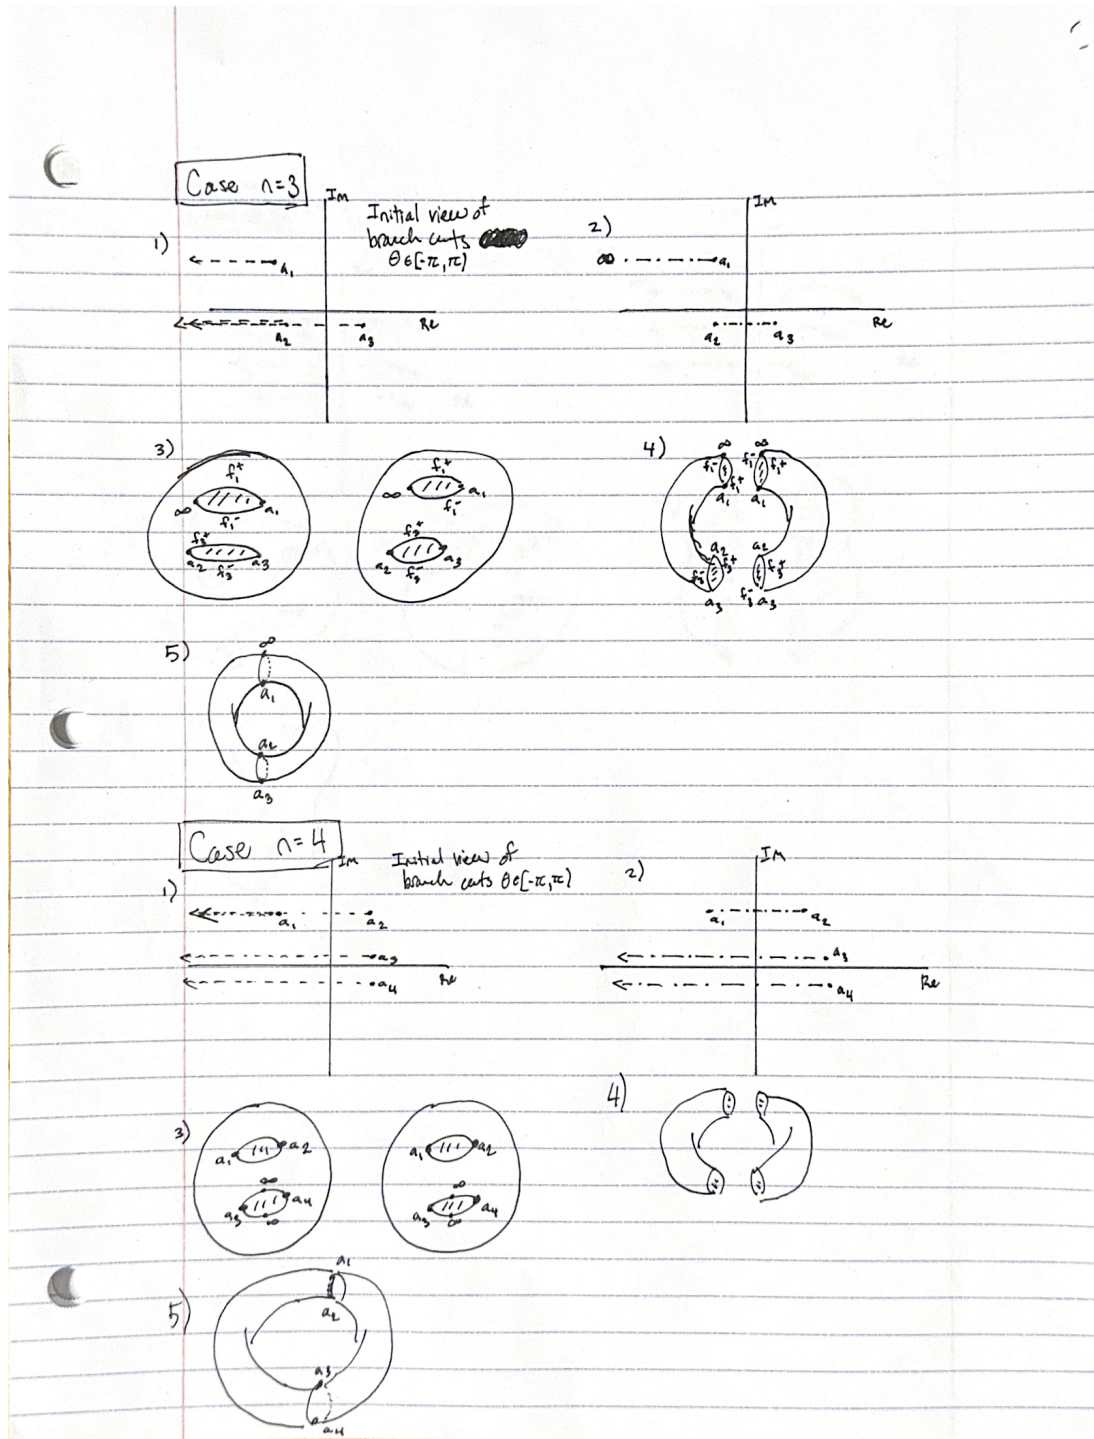 Case n=3
Im
Initial view of
branch cuts
θ∈[-π,π)
1)
a₁
Re
a₂
a₃
2)
Im
∞
a₁
Re
a₂
a₃
3)
f₁⁺
∞
a₁
f₁⁻
f₃⁺
a₂
a₃
f₃⁻
f₁⁺
∞
a₁
f₁⁻
f₃⁺
a₂
a₃
f₃⁻
4)
∞ ∞
f₁⁻ f₁⁺ f₁⁻ f₁⁺
a₁ a₁
a₂ a₂
f₃⁻ f₃⁺ f₃⁻ f₃⁺
a₃ a₃
5)
∞
a₁
a₂
a₃
Case n=4
Im
Initial view of
branch cuts θ∈[-π,π)
1)
a₁ a₂
a₃
a₄
Re
2)
Im
a₁ a₂
a₃
a₄
Re
3)
a₁ a₂
∞
a₃ a₄
∞
a₁ a₂
∞
a₃ a₄
∞
4)
5)
a₁
a₂
a₃
a₄